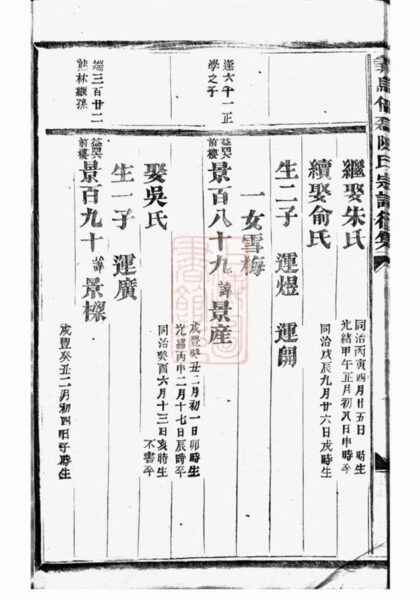 繼娶朱氏
同治丙寅四月廿五日 時生
光緒甲午正月初八日申時卒
續娶俞氏
同治戊辰九月廿六日戌時生
生二子 運煜 運開
一女雪梅
達六千一正
學之子
前樓
景百八十九 諱景産
咸豐癸丑二月初一日卯時生
光緒丙申二月十七日辰時卒
娶吳氏
同治癸酉六月十三日亥時生
不書卒
生一子 運廣
端三百廿二
熊林繼孫
前樓
景百九十 諱景檪
咸豐癸丑二月初四日子時生